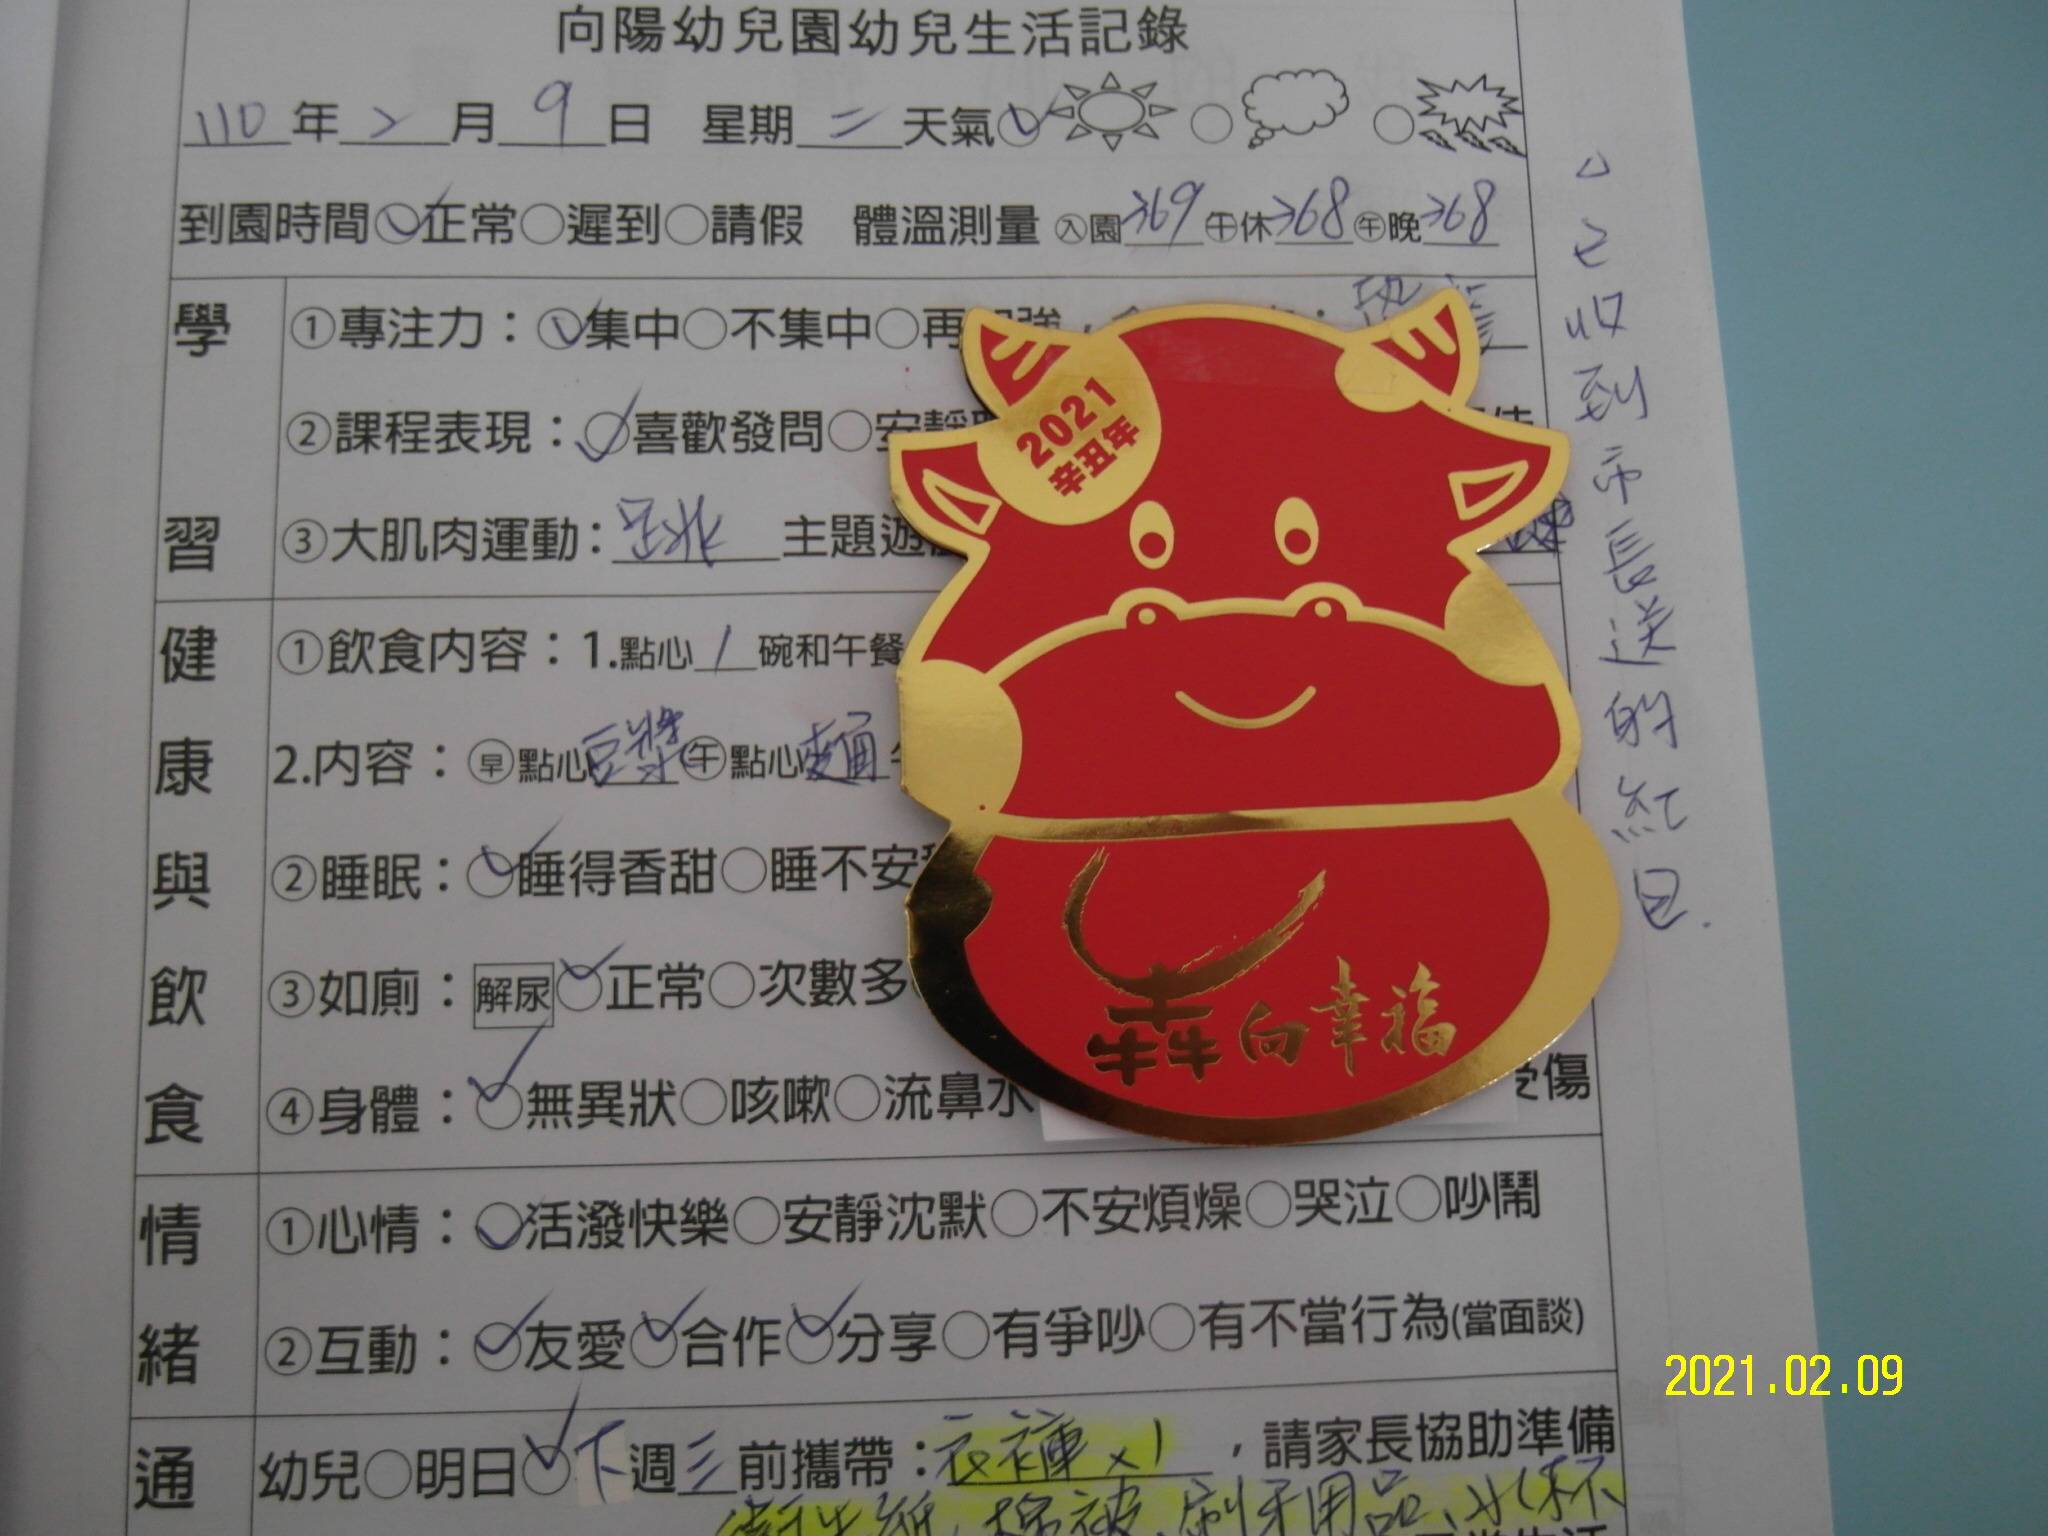 向陽幼兒園幼兒生活記錄
110年2月9日 星期二天氣
到園時間○正常○遲到○請假 體溫測量 ㊤園369 午休368 午晚368
學習
①專注力：○集中○不集中○再
②課程表現：○喜歡發問○安靜
③大肌肉運動：跳 主題遊
健康與飲食
①飲食內容：1.點心1碗和午餐
2.內容：早點心豆漿午點心麵
②睡眠：○睡得香甜○睡不安
③如廁：解尿○正常○次數多
④身體：○無異狀○咳嗽○流鼻水 受傷
情緒
①心情：○活潑快樂○安靜沈默○不安煩燥○哭泣○吵鬧
②互動：○友愛○合作○分享○有爭吵○有不當行為(當面談)
通
幼兒○明日○下週三前攜帶：衣褲x1，請家長協助準備
衛生紙、棉被、刷牙用品、水杯
△已收到市長送的紅包.
2021
辛丑年
犇向幸福
2021.02.09